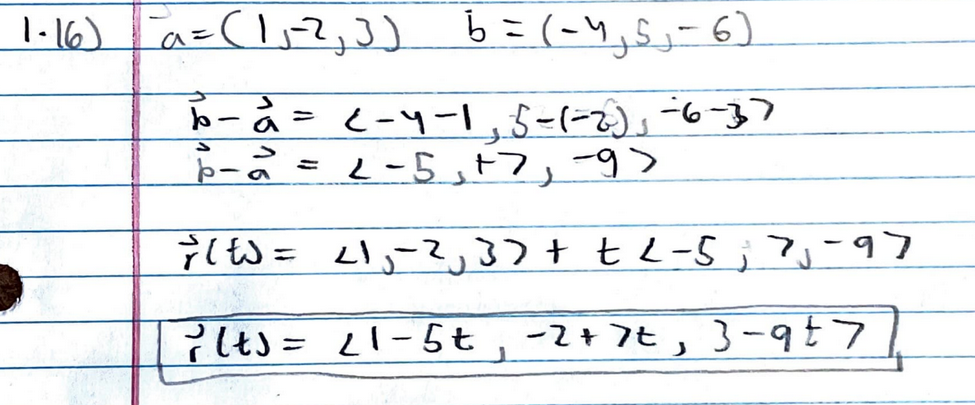 1.16) a⃗=(1,-2,3) b⃗=(-4,5,-6)
b⃗-a⃗= <-4-1,5-(-2),-6-3>
b⃗-a⃗= <-5,+7,-9>
r⃗(t)= <1,-2,3>+ t<-5,7,-9>
r⃗(t)= <1-5t,-2+7t,3-9t>